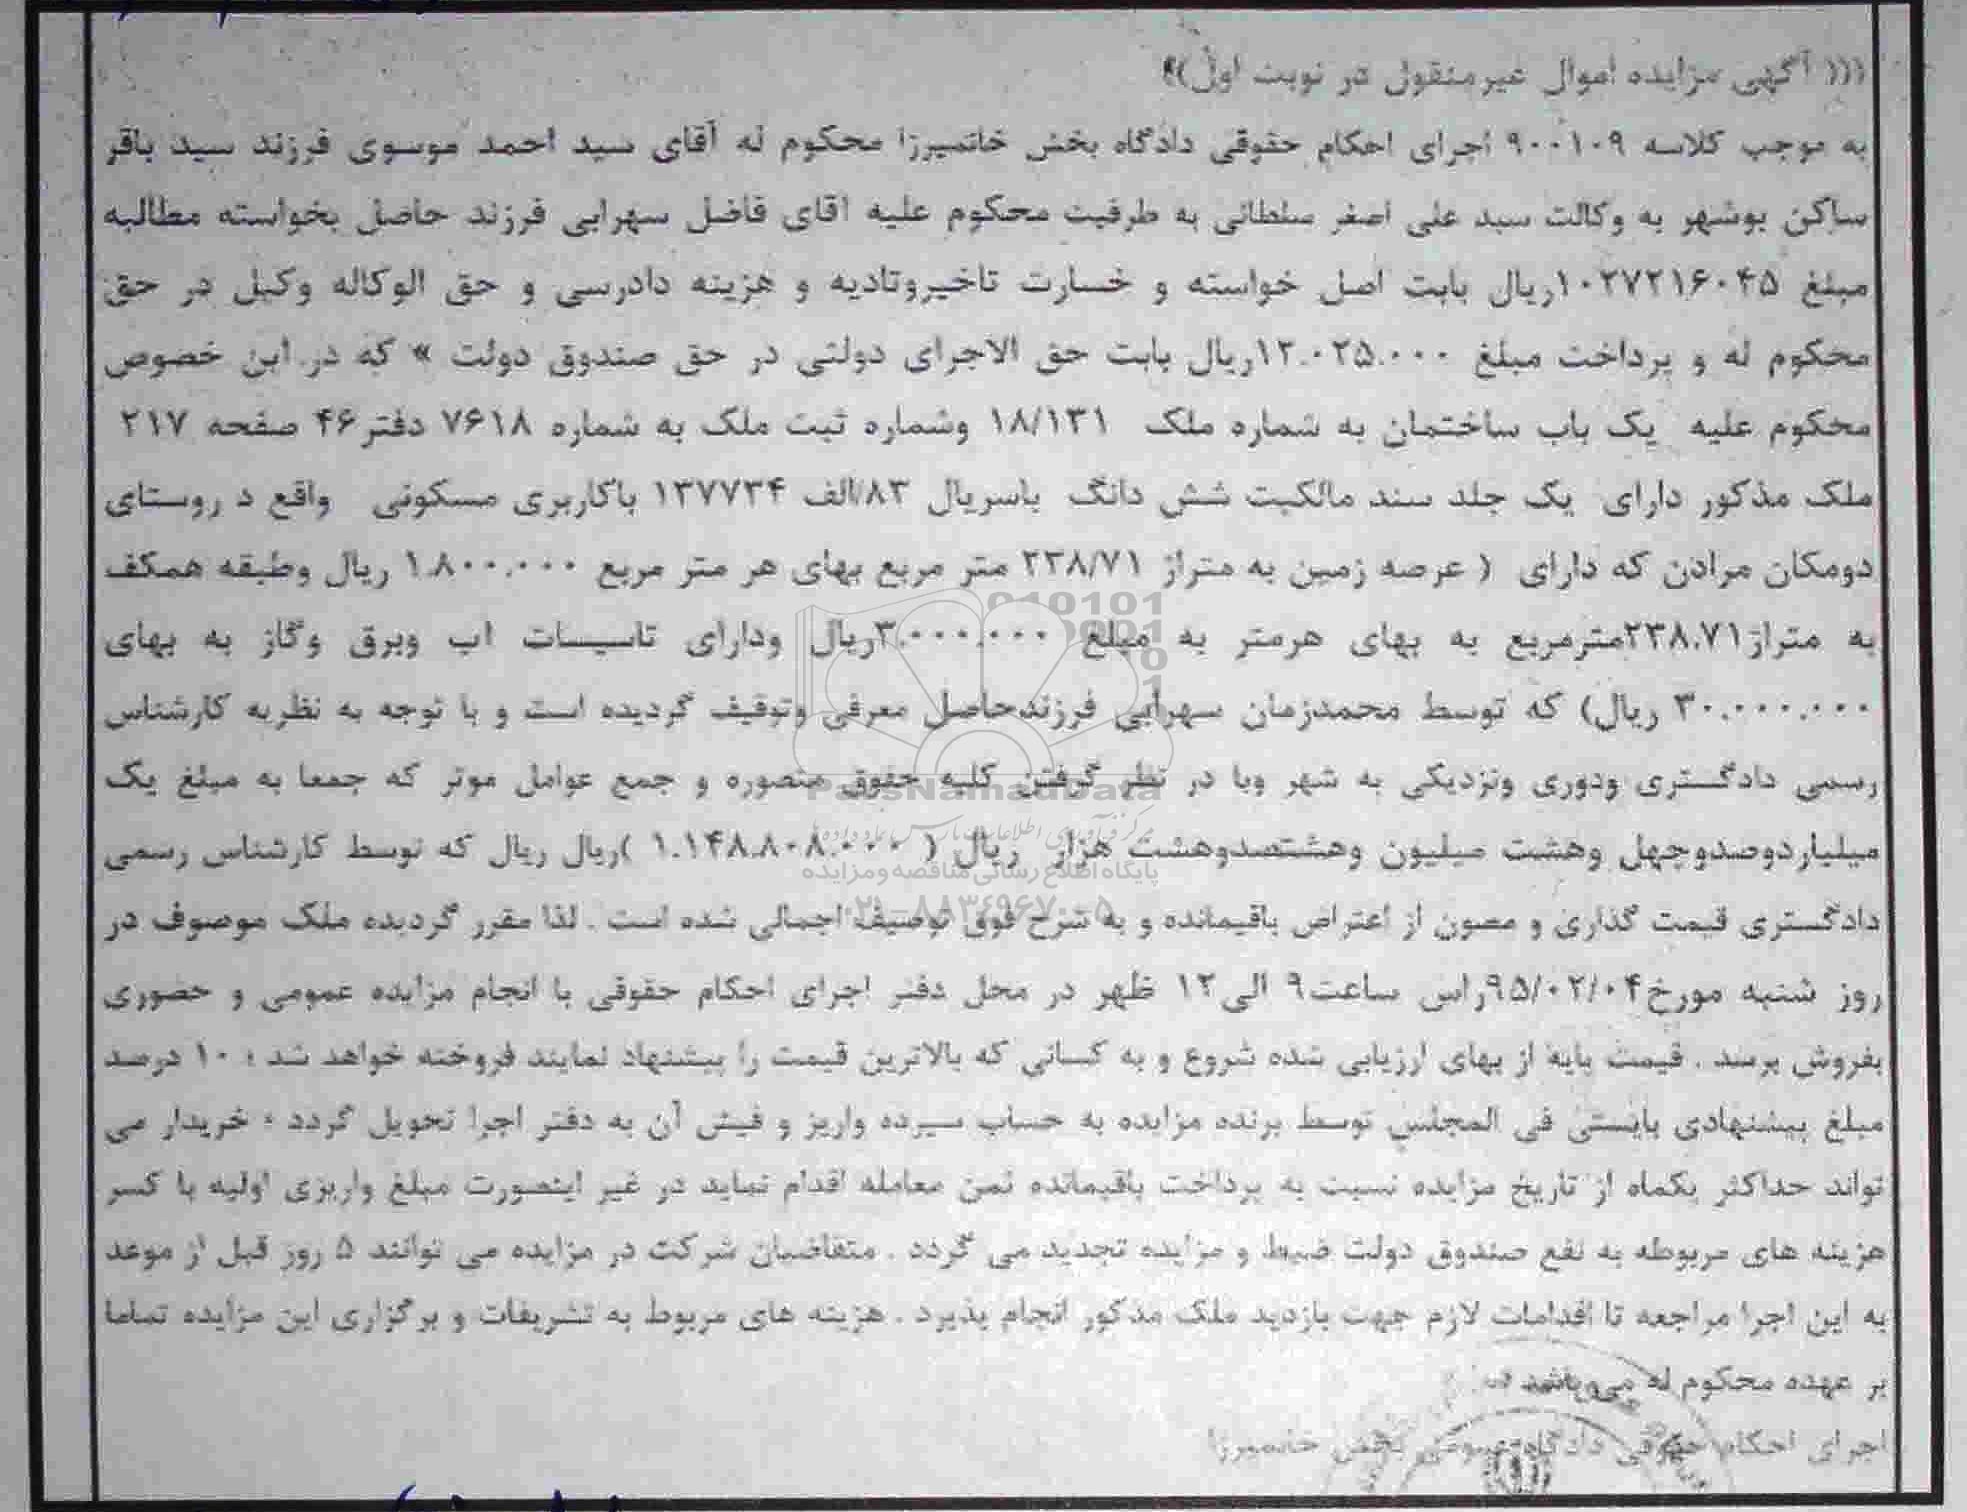 ((( آگهی مزایده اموال غیرمنقول در نوبت اول))
به موجب کلاسه ۹۰۰۱۰۹ اجرای احکام حقوقی دادگاه بخش خانمیرزا محکوم له آقای سید احمد موسوی فرزند سید باقر
ساکن بوشهر به وکالت سید علی اصغر سلطانی به طرفیت محکوم علیه اقای فاضل سهرابی فرزند حاصل بخواسته مطالبه
مبلغ ۱۰۲۷۲۱۶۰۴۵ریال بابت اصل خواسته و خسارت تاخیروتادیه و هزینه دادرسی و حق الوکاله وکیل در حق
محکوم له و پرداخت مبلغ ۱۲.۰۲۵.۰۰۰ریال بابت حق الاجرای دولتی در حق صندوق دولت » که در این خصوص
محکوم علیه یک باب ساختمان به شماره ملک ۱۸/۱۳۱ وشماره ثبت ملک به شماره ۷۶۱۸ دفتر۴۶ صفحه ۲۱۷
ملک مذکور دارای یک جلد سند مالکیت شش دانگ باسریال ۸۳/الف ۱۳۷۷۳۴ باکاربری مسکونی واقع د روستای
دومکان مرادن که دارای ( عرصه زمین به متراژ ۲۳۸/۷۱ متر مربع بهای هر متر مربع ۱.۸۰۰.۰۰۰ ریال وطبقه همکف
به متراژ۲۳۸.۷۱مترمربع به بهای هرمتر به مبلغ ۳.۰۰۰.۰۰۰ریال ودارای تاسیسات اب وبرق وگاز به بهای
۳۰.۰۰۰.۰۰۰ ریال) که توسط محمدزمان سهرابی فرزندحاصل معرفی وتوقیف گردیده است و با توجه به نظریه کارشناس
رسمی دادگستری ودوری ونزدیکی به شهر وبا در نظر گرفتن کلیه حقوق متصوره و جمع عوامل موثر که جمعا به مبلغ یک
میلیاردوصدوچهل وهشت میلیون وهشتصدوهشت هزار ریال ( ۱.۱۴۸.۸۰۸.۰۰۰ )ریال ریال که توسط کارشناس رسمی
دادگستری قیمت گذاری و مصون از اعتراض باقیمانده و به شرح فوق توصیف اجمالی شده است . لذا مقرر گردیده ملک موصوف در
روز شنبه مورخ۹۵/۰۲/۰۴راس ساعت۹ الی۱۲ ظهر در محل دفتر اجرای احکام حقوقی با انجام مزایده عمومی و حضوری
بفروش برسد . قیمت پایه از بهای ارزیابی شده شروع و به کسانی که بالاترین قیمت را پیشنهاد نمایند فروخته خواهد شد ؛ ۱۰ درصد
مبلغ پیشنهادی بایستی فی المجلس توسط برنده مزایده به حساب سپرده واریز و فیش آن به دفتر اجرا تحویل گردد ؛ خریدار می
تواند حداکثر یکماه از تاریخ مزایده نسبت به پرداخت باقیمانده ثمن معامله اقدام نماید در غیر اینصورت مبلغ واریزی اولیه با کسر
هزینه های مربوطه به نفع صندوق دولت ضبط و مزایده تجدید می گردد . متقاضیان شرکت در مزایده می توانند ۵ روز قبل از موعد
به این اجرا مراجعه تا اقدامات لازم جهت بازدید ملک مذکور انجام پذیرد . هزینه های مربوط به تشریفات و برگزاری این مزایده تماما
بر عهده محکوم له می باشد
اجرای احکام حقوقی دادگاه عمومی بخش خانمیرزا
ParsNamadData
مرکز فرآوری اطلاعات پارس نماد داده ها
پایگاه اطلاع رسانی مناقصه و مزایده
۰۲۱-۸۸۳۴۹۶۷۰-۵